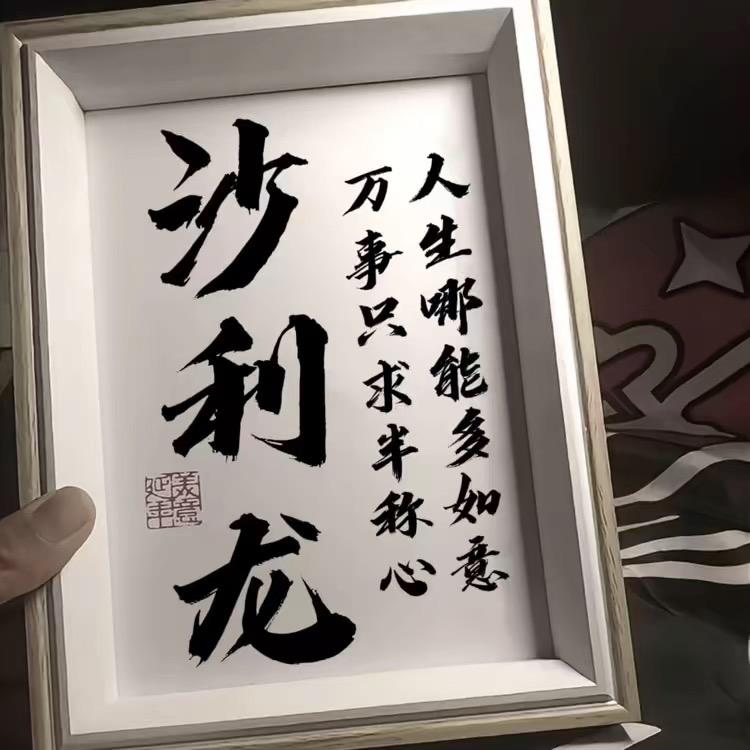 人生哪能多如意
万事只求半称心
沙利龙
美意延年